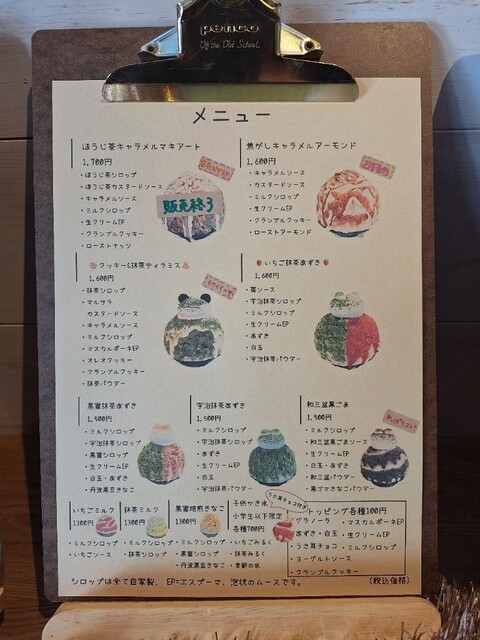 penco
Of the Old School.
メニュー
ほうじ茶キャラメルマキアート
1,700円
・ほうじ茶シロップ
・ほうじ茶カスタードソース
・キャラメルソース
・ミルクシロップ
・生クリームEP
・クランブルクッキー
・ローストナッツ
販売終了
焦がしキャラメルアーモンド
1,600円
・キャラメルソース
・カスタードソース
・ミルクシロップ
・生クリームEP
・クランブルクッキー
・ローストアーモンド
クッキーC抹茶ティラミス
1,600円
・抹茶シロップ
・マルサラ
カスタードソース
・キャラメルソース
・ミルクシロップ
・マスカルポーネEP
・オレオクッキー
・クランブルクッキー
・抹茶パウダー
いちご抹茶あずき
1,600円
・苺ソース
・宇治抹茶シロップ
・ミルクシロップ
・生クリームEP
・あずき
・白玉
・宇治抹茶パウダー
黒蜜抹茶あずき
1,500円
・ミルクシロップ
・宇治抹茶シロップ
・黒蜜シロップ
・生クリームEP
・白玉・あずき
・丹波黒豆きなこ
宇治抹茶あずき
1,500円
・ミルクシロップ
・宇治抹茶シロップ
・あずき
・生クリームEP
・白玉
・宇治抹茶パウダー
和三盆黒ごま
1,500円
・ミルクシロップ
・和三盆黒ごまソース
・生クリームEP
・白玉・あずき
・和三盆パウダー
・黒ゴマきなこパウダー
いちごミルク
1300円
・ミルクシロップ
・いちごソース
抹茶ミルク
1300円
・ミルクシロップ
・抹茶シロップ
黒蜜焙煎きなこ
1300円
・ミルクシロップ
・黒蜜シロップ
・丹波黒豆きなこ
子供かき氷
小学生以下限定
各種700円
・いちごみるく
・抹茶みるく
・季節の氷
うさ耳チョコ付き
トッピング各種100円
・グラノーラ ・マスカルポーネEP
・あずき・白玉 ・生クリームEP
・うさ耳チョコ ・ミルクシロップ
・ヨーグルトソース
・クランブルクッキー
シロップは全て自家製、EP=エスプーマ、泡状のムースです。
(税込価格)